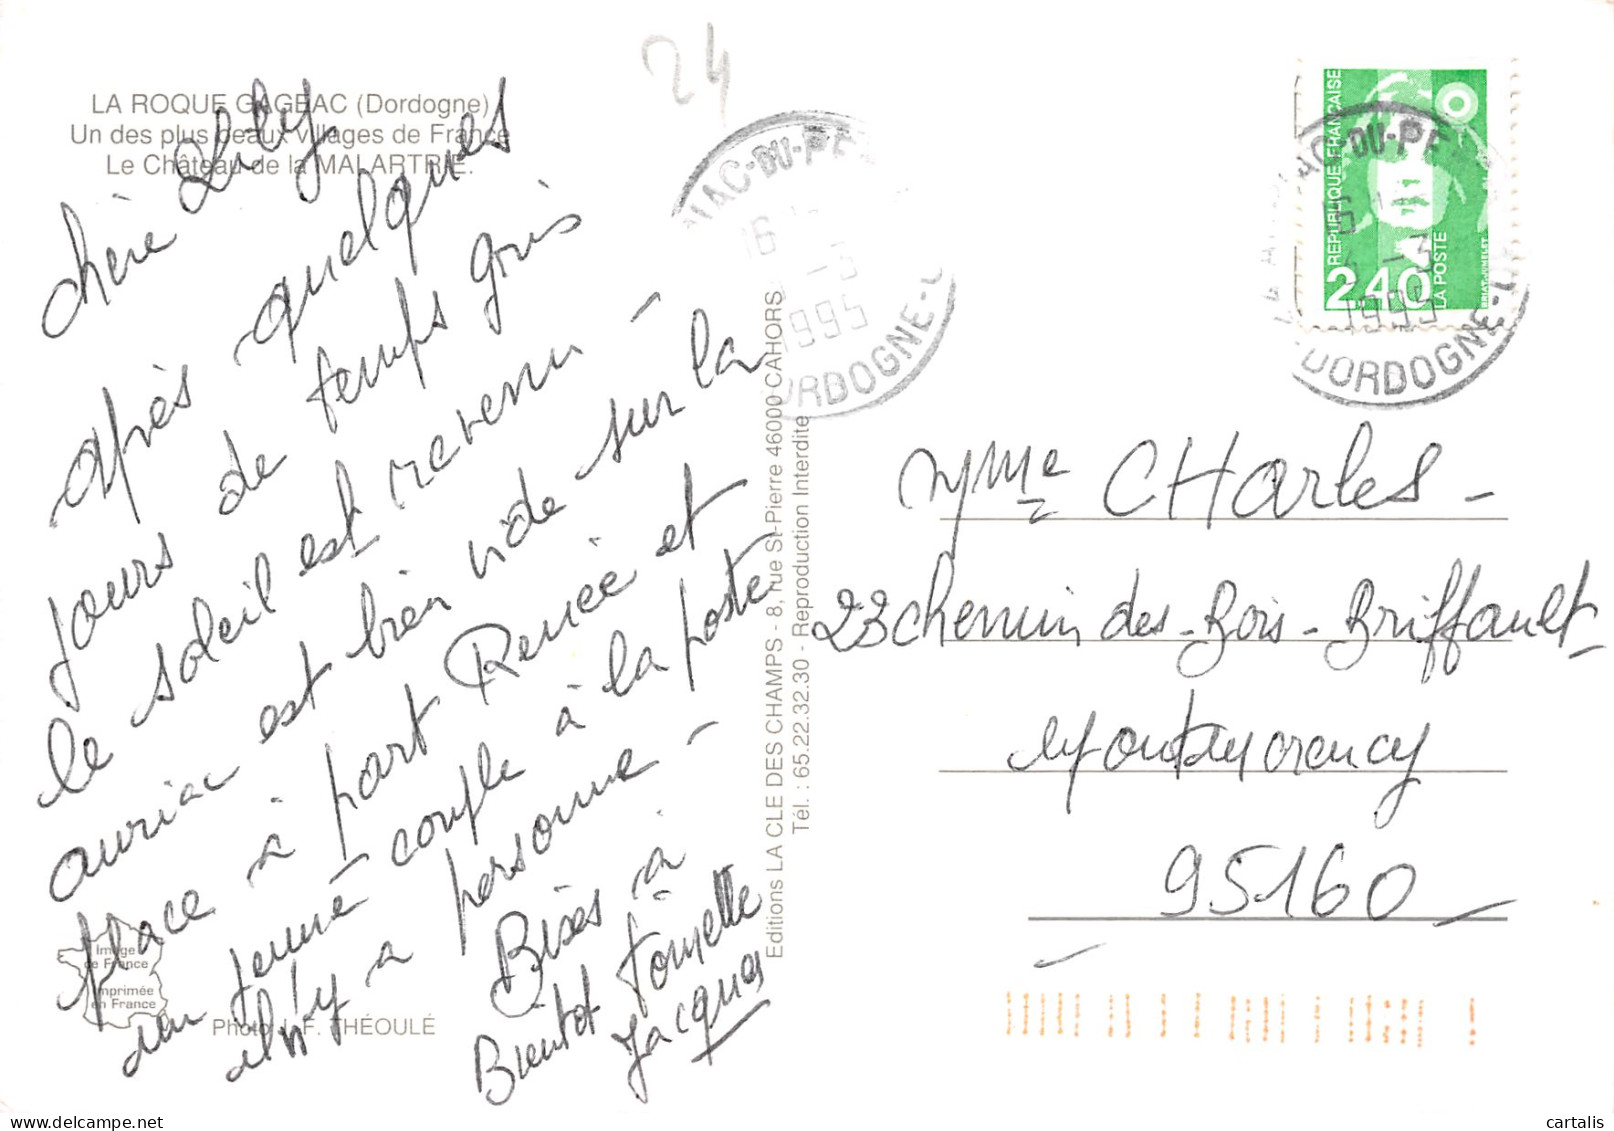 24
LA ROQUE GAGEAC (Dordogne)
Un des plus beaux villages de France
Le Château de la MALARTRIE.
chère Lily
après quelques
jours de temps gris
le soleil est revenu -
auriac est bien vide sur la
place à part Renée et
un jeune couple à la poste
il n'y a personne -
Bises à
Bientot
Jacques
Image
de France
Imprimée
en France
Photo J.F. THÉOULÉ
Editions LA CLE DES CHAMPS - 8, rue St-Pierre 46000 CAHORS
Tél. : 65.22.32.30 - Reproduction Interdite
IAC-DU-PE
16
-3
1995
DORDOGNE
REPUBLIQUE FRANÇAISE
2,40
LA POSTE
BRIAT-JUMELET
AC-DU-PE
-3
1995
DORDOGNE
Mme CHarles -
23 chemin des - Bois - Briffault -
Montmorency
95160 -
cartalis
delcampe.net